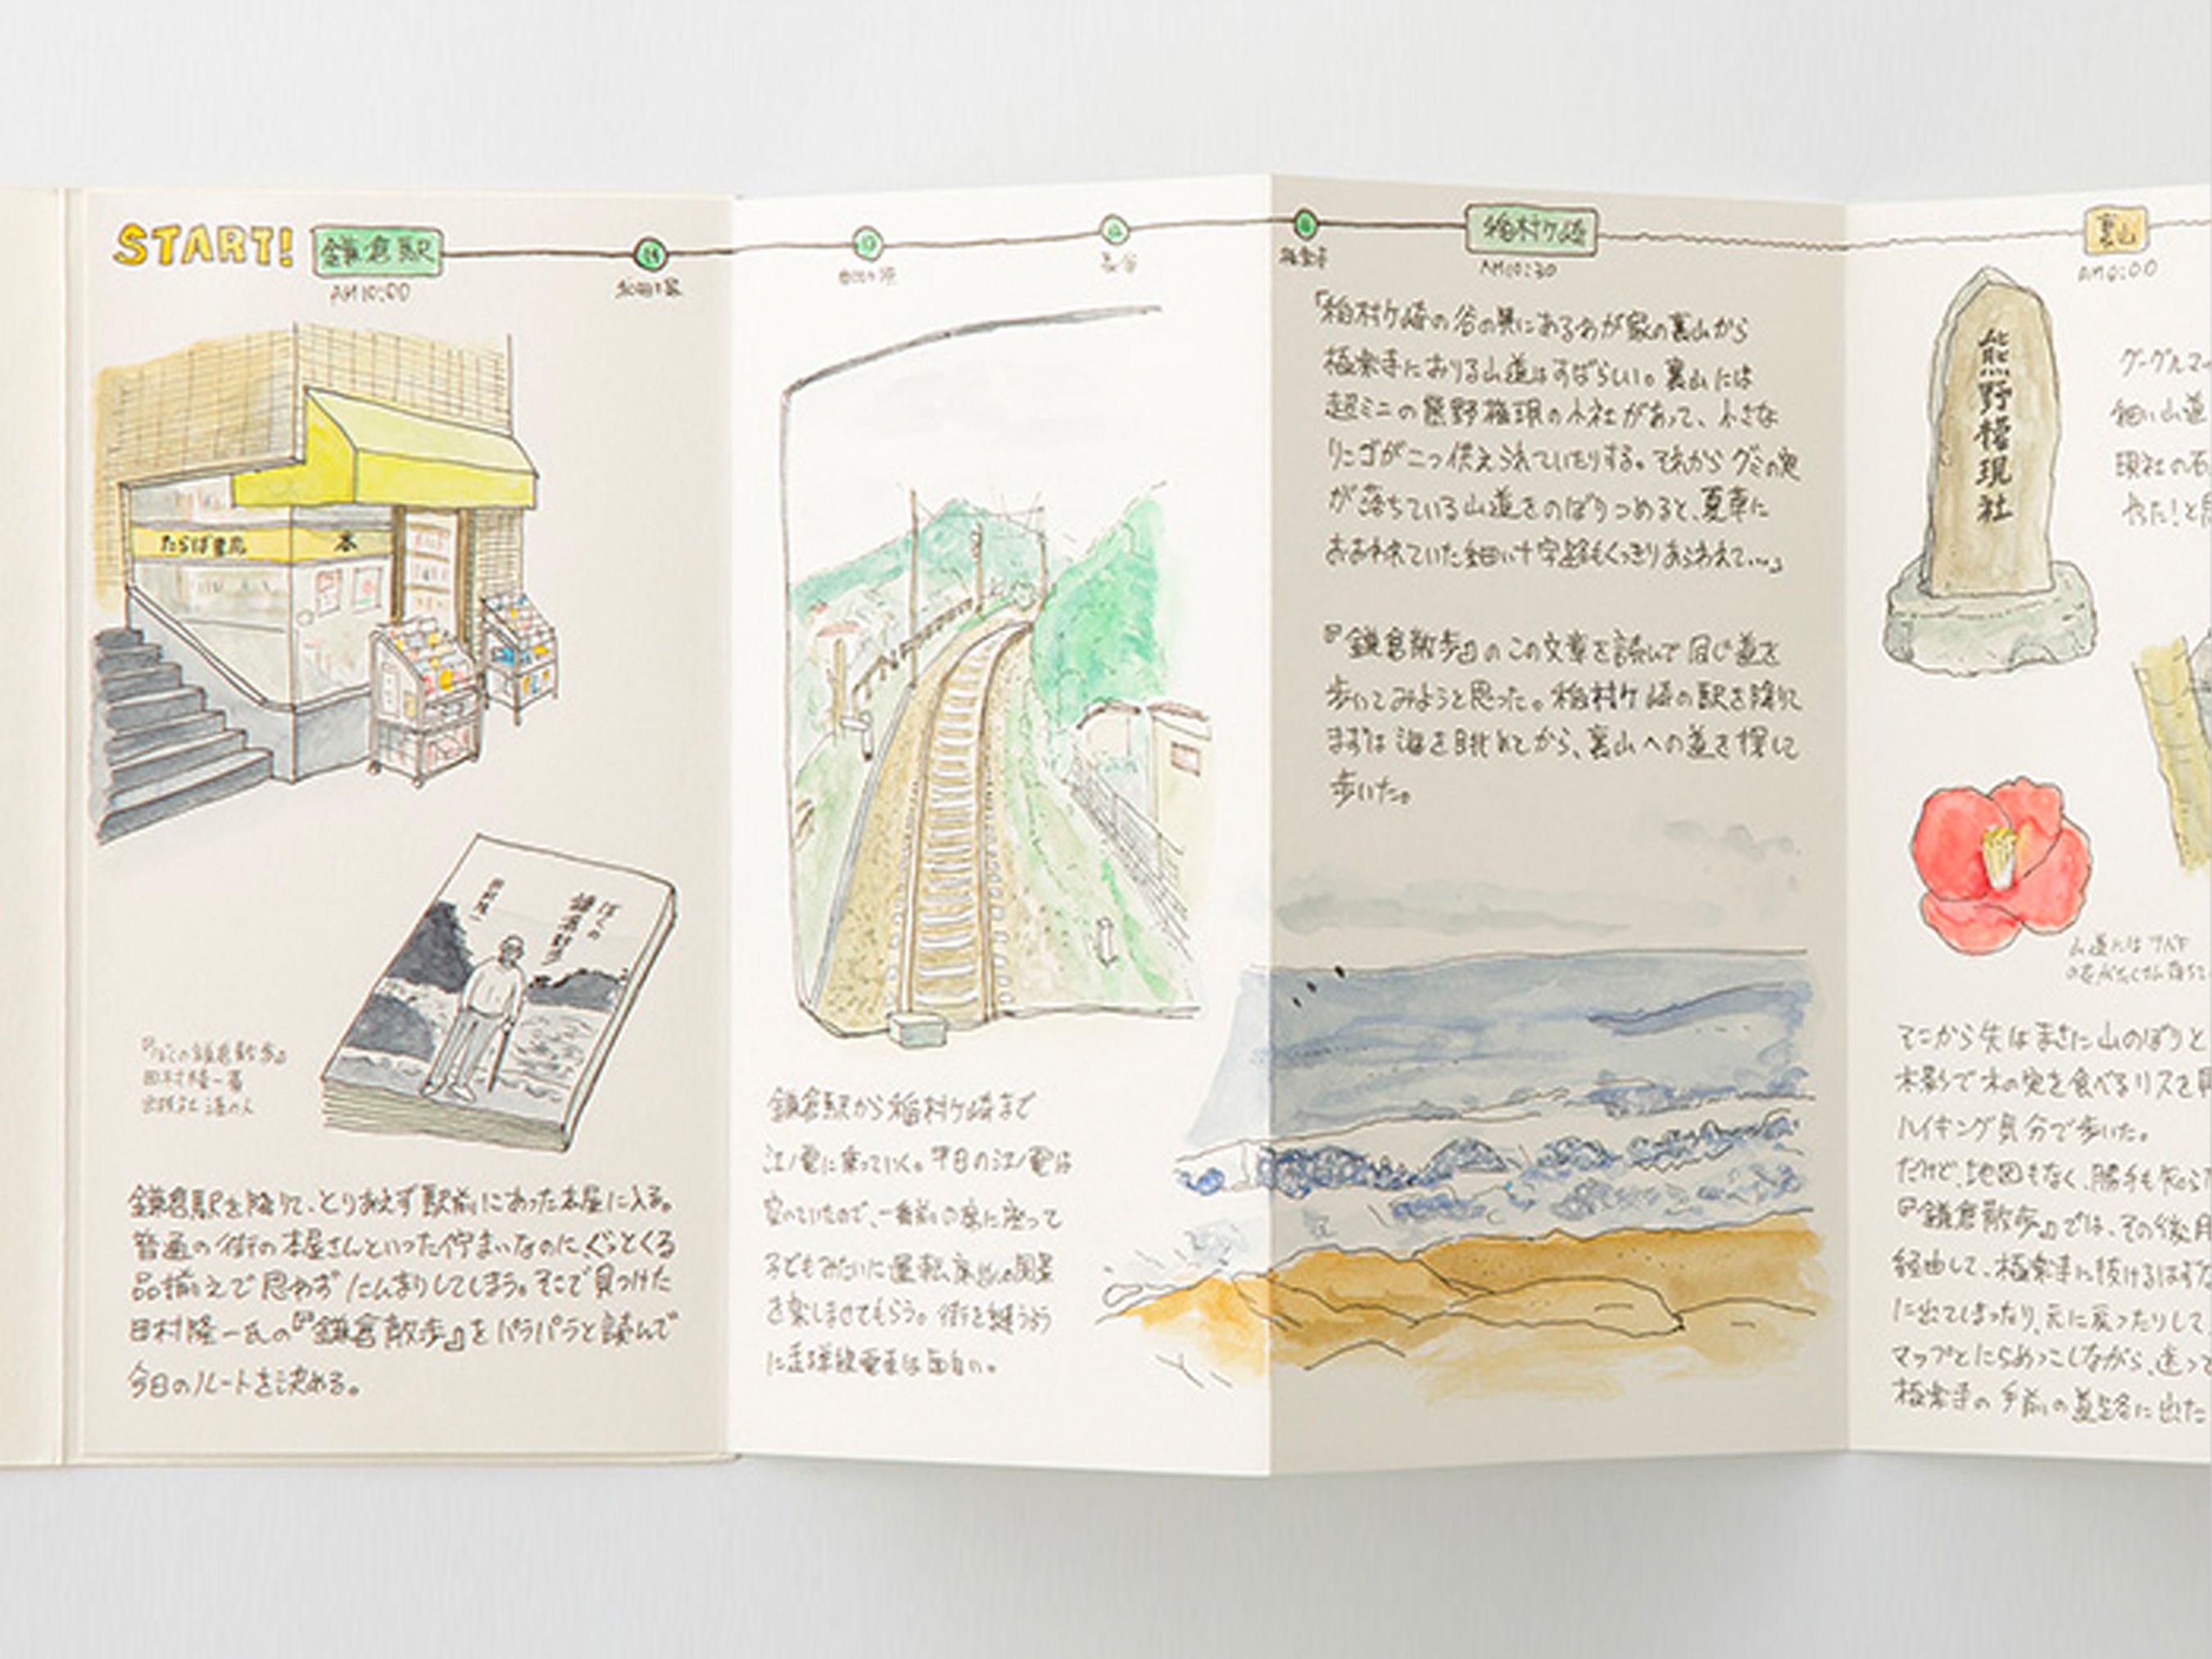 START!
鎌倉駅
AM10:00
和田塚
たらば書房
本
ぼくの
鎌倉散歩
田村隆一
『ぼくの鎌倉散歩』
田村隆一著
出版社 港の人
鎌倉駅を降りて、とりあえず駅前にあった本屋に入る。
普通の街の本屋さんといった佇まいなのに、ぐっとくる
品揃えで思わずにんまりしてしまう。そこで見つけた
田村隆一氏の『鎌倉散歩』をパラパラと読んで
今日のルートを決める。
由比ヶ浜
長谷
鎌倉駅から稲村ヶ崎まで
江ノ電に乗っていく。平日の江ノ電は
空いていたので、一番前の席に座って
子どもみたいに運転席からの風景
を楽しませてもらう。街を縫うよう
に走る単線電車は面白い。
極楽寺
稲村ヶ崎
AM10:30
「稲村ヶ崎の谷の奥にあるわが家の裏山から
極楽寺におりる山道はすばらしい。裏山には
超ミニの熊野権現の小社があって、小さな
リンゴが二つ供えられていたりする。それからグミの実
が落ちている山道をのぼりつめると、夏草に
おおわれていた細い十字路もくっきりあらわれて…」
『鎌倉散歩』のこの文章を読んで同じ道を
歩いてみようと思った。稲村ヶ崎の駅を降りて
まずは海を眺めてから、裏山への道を探して
歩いた。
裏山
熊野権現社
グーグルマ
細い山道
現社の石
やった!と
山道にはツバキ
の花がたくさん落ち
そこから先はまさに山のぼりと
木影で木の実を食べるリスを
ハイキング気分で歩いた。
だけど、地図もなく、勝手も知ら
『鎌倉散歩』では、その後
経由して、極楽寺に抜けるはず
に出てしまったり、元に戻ったりして
マップとにらめっこしながら、迷って
極楽寺の手前の道路に出た